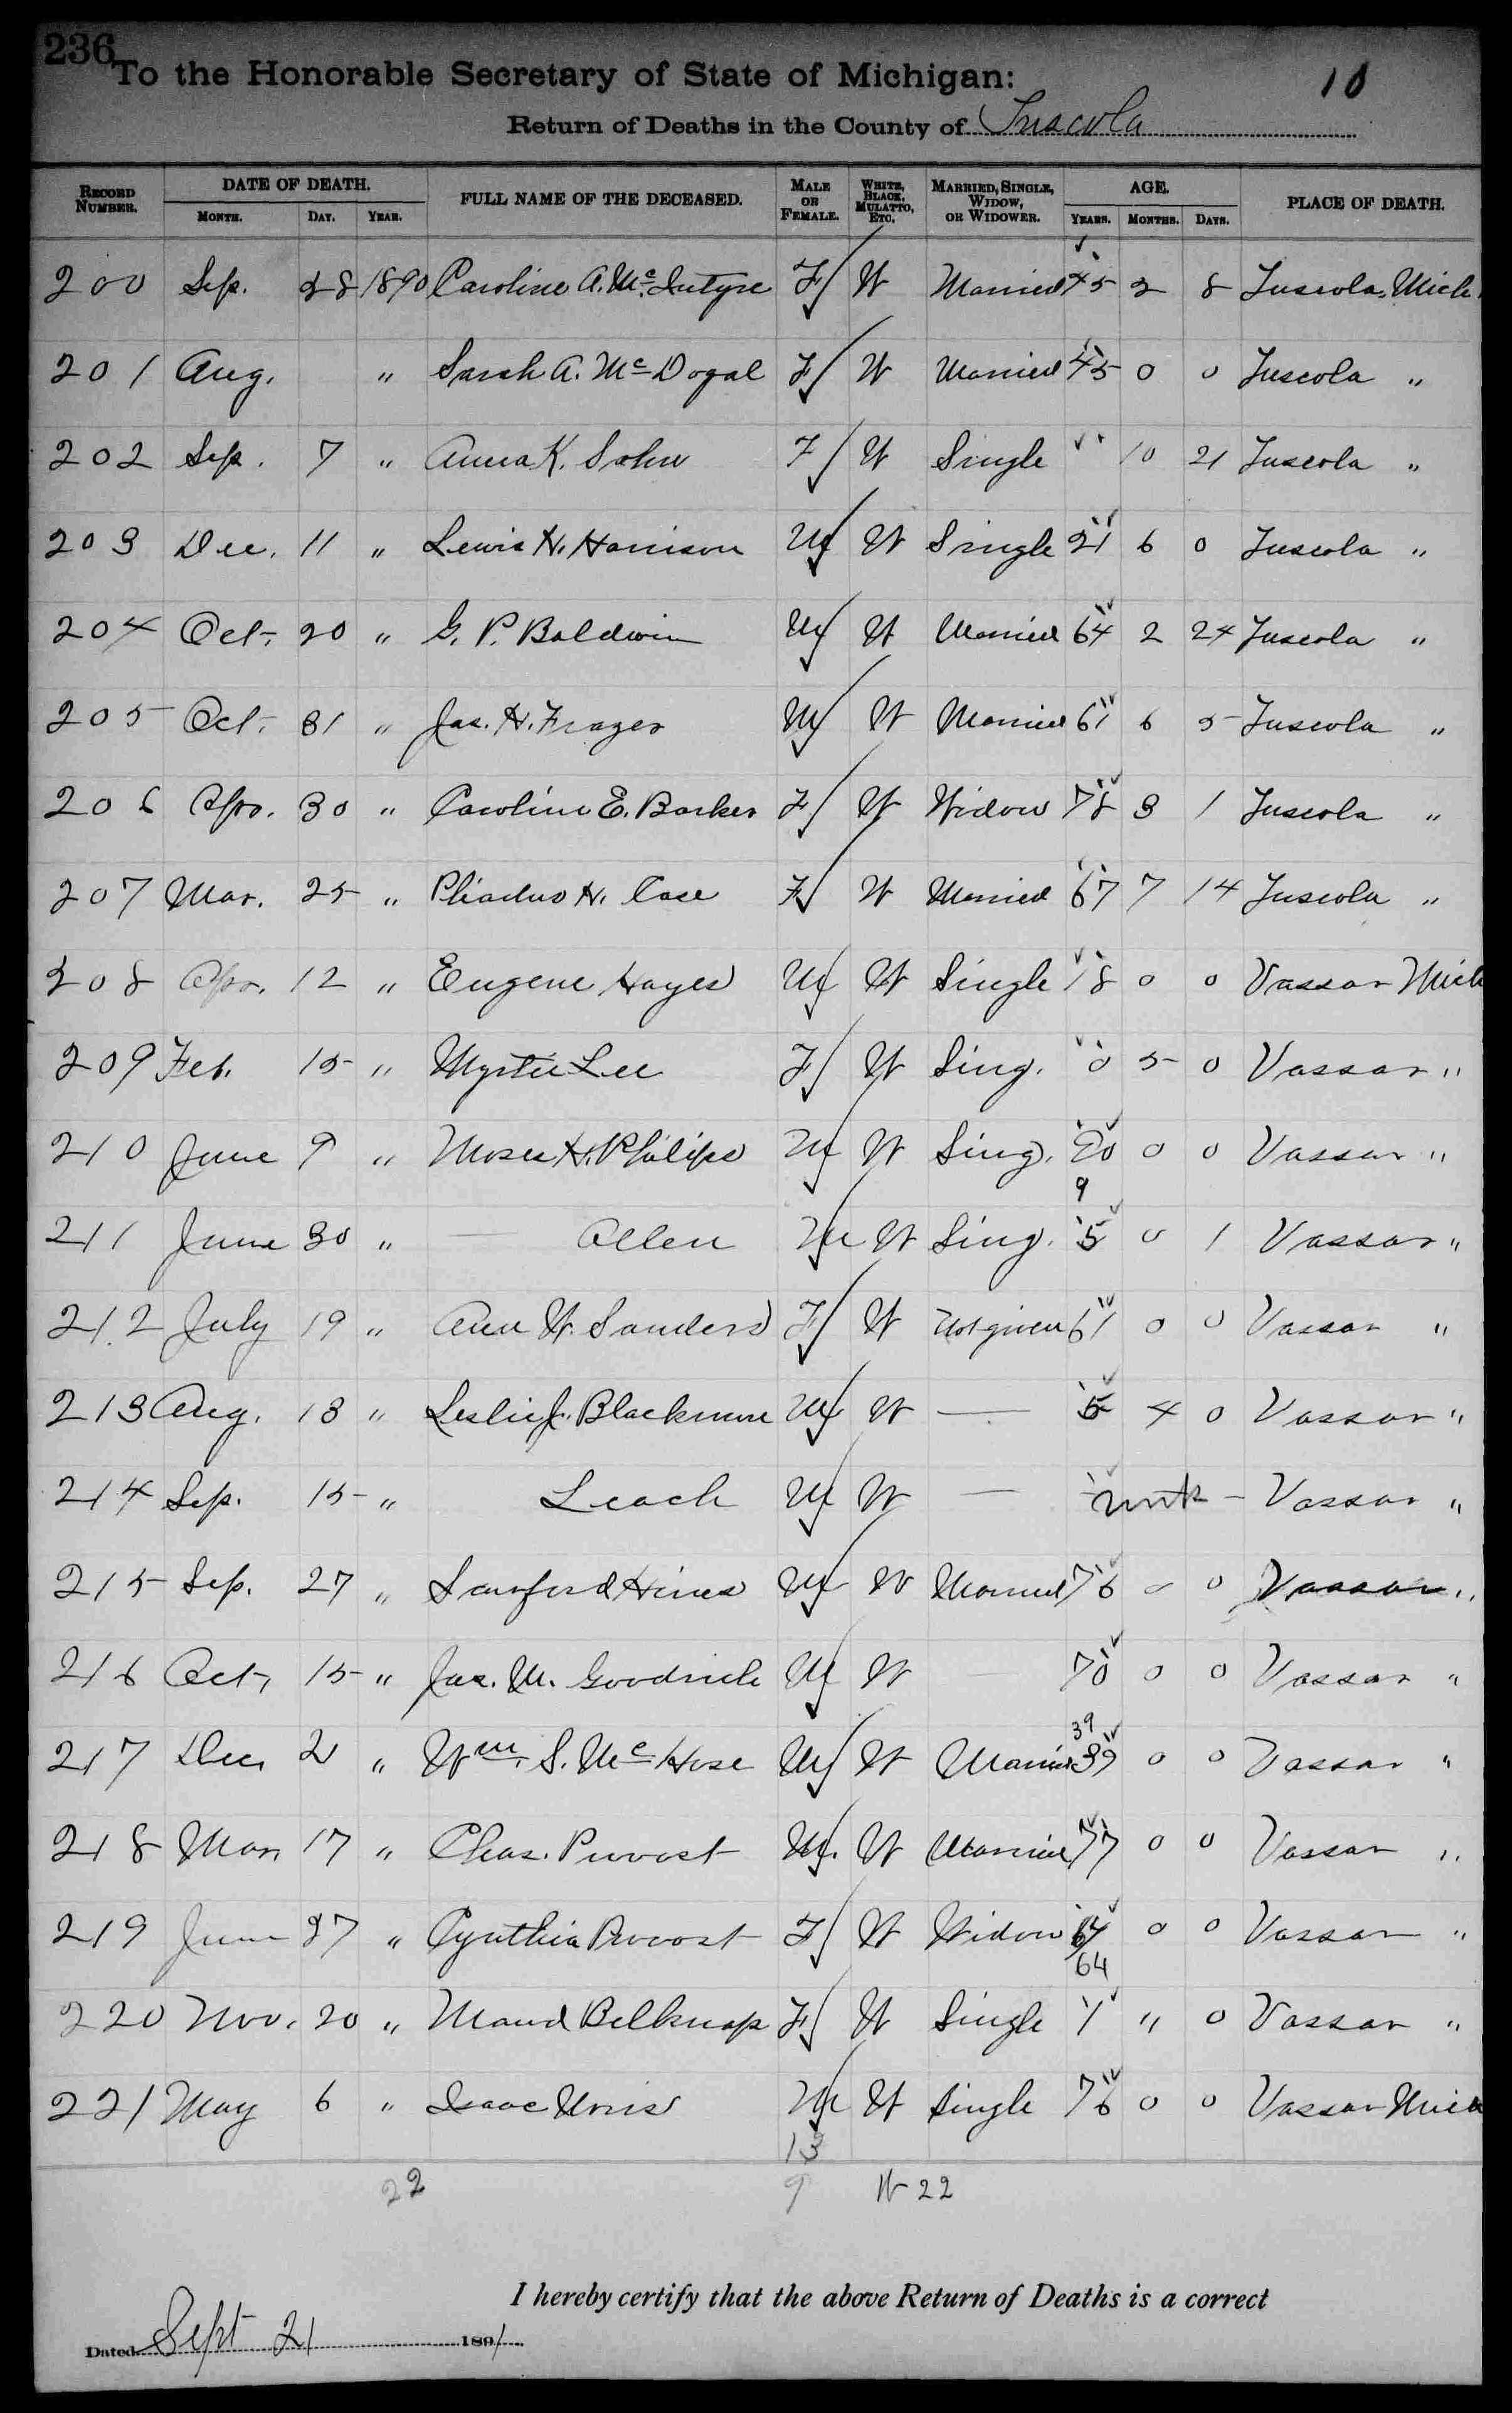 236
To the Honorable Secretary of State of Michigan:
10
Return of Deaths in the County of Tuscola
RECORD NUMBER. DATE OF DEATH. MONTH. DAY. YEAR. FULL NAME OF THE DECEASED. MALE OR FEMALE. WHITE, BLACK, MULATTO, ETC. MARRIED, SINGLE, WIDOW, OR WIDOWER. AGE. YEARS. MONTHS. DAYS. PLACE OF DEATH.
200 Sep. 28 1890 Caroline A. McIntyre F W Married 45 2 8 Tuscola, Mich.
201 Aug. " Sarah A. McDogal F W Married 45 0 0 Tuscola "
202 Sep. 7 " Anna K. Sohn F W Single 10 21 Tuscola "
203 Dec. 11 " Lewis H. Harrison M W Single 21 6 0 Tuscola "
204 Oct. 20 " G. P. Baldwin M W Married 64 2 24 Tuscola "
205 Oct. 31 " Jas. H. Frazer M W Married 61 6 5 Tuscola "
206 Apr. 30 " Caroline E. Barker F W Widow 78 3 1 Tuscola "
207 Mar. 25 " H. Case F W Married 67 7 14 Tuscola "
208 Apr. 12 " Eugene Hayes M W Single 18 0 0 Vassar Mich
209 Feb. 15 " Myrtie Lee F W Sing. 0 5 0 Vassar "
210 June 9 " Moses H. Philips M W Sing. 20 0 0 Vassar "
9
211 June 30 " — Allen M W Sing. 5 0 1 Vassar "
212 July 19 " Ann W. Sanders F W Not given 61 0 0 Vassar "
213 Aug. 13 " Leslie J. Blackmore M W — 5 4 0 Vassar "
214 Sep. 15 " Leach M W — unk — Vassar "
215 Sep. 27 " Sanford Hines M W Married 76 0 0 Vassar "
216 Oct. 15 " Jas. M. Goodrich M W 70 0 0 Vassar "
39
217 Dec. 2 " Wm. S. McHose M W Married 39 0 0 Vassar "
218 Mar. 17 " Chas. Provost M. W Married 77 0 0 Vassar "
219 June 27 " Cynthia Provost F W Widow 64 0 0 Vassar "
64
220 Nov. 20 " Maud Belknap F W Single 1 11 0 Vassar "
221 May 6 " Isaac M W Single 76 0 0 Vassar Mich
13
22 9 W 22
I hereby certify that the above Return of Deaths is a correct
Dated Sept 21 1891